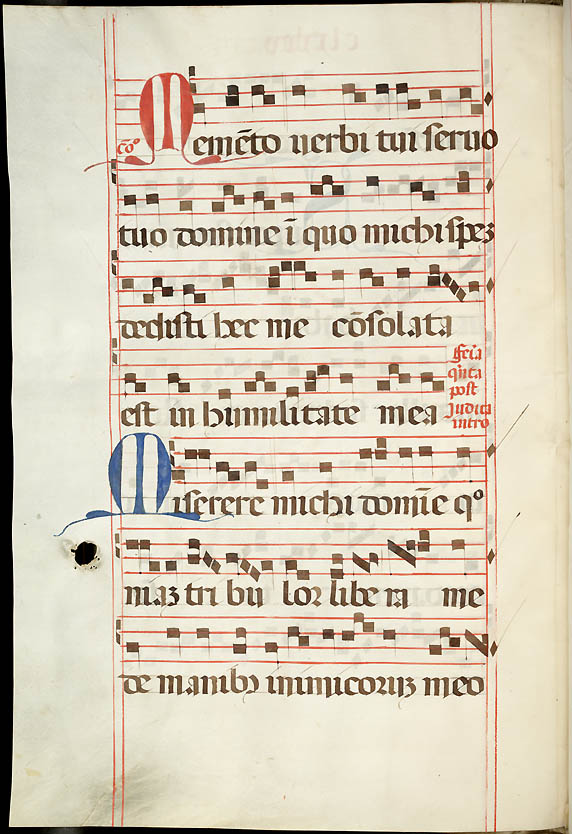 cōº Memēto uerbi tui seruo
tuo domine ī quo michi speȝ
dedisti hec me cōsolata
est in humilitate mea
feīa
qīnta
post
Judica
intro
Miserere michi domīe qº
niaȝ tribulor libera me
de manibȝ inimicoruȝ meo